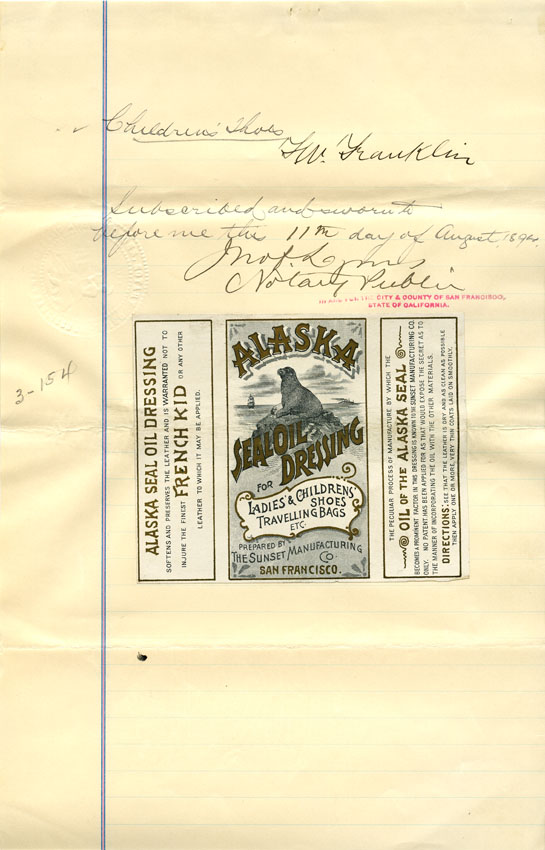 Children's Shoes
F. W. Franklin
Subscribed and sworn to
before me this 11th day of August, 1894.
Notary Public
IN AND FOR THE CITY & COUNTY OF SAN FRANCISCO,
STATE OF CALIFORNIA.
3-154
ALASKA SEAL OIL DRESSING
SOFTENS AND PRESERVES THE LEATHER AND IS WARRANTED NOT TO
INJURE THE FINEST FRENCH KID OR ANY OTHER
LEATHER TO WHICH IT MAY BE APPLIED.
ALASKA
SEAL OIL
DRESSING
FOR
LADIES' & CHILDRENS'
SHOES
TRAVELLING BAGS
ETC.
PREPARED BY
THE SUNSET MANUFACTURING
CO.
SAN FRANCISCO.
THE PECULIAR PROCESS OF MANUFACTURE BY WHICH THE
OIL OF THE ALASKA SEAL
BECOMES A PROMINENT FACTOR IN THIS DRESSING IS KNOWN TO THE SUNSET MANUFACTURING CO.
ONLY. NO PATENT HAS BEEN APPLIED FOR AS THAT WOULD EXPOSE THE SECRET AS TO
THE MANNER OF INCORPORATING THE OIL WITH THE OTHER MATERIALS.
DIRECTIONS: SEE THAT THE LEATHER IS DRY AND AS CLEAN AS POSSIBLE
THEN APPLY ONE OR MORE, VERY THIN COATS LAID ON SMOOTHLY.